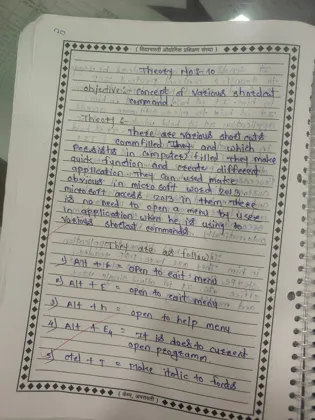 Theory No:- 10
objective:- concept of various shortcut
command
Theory :-
There are various short cuts
commfilled They and which
Persists in computer filled they make
quick function and create different
application They can used make
obvious in microsoft word
microsoft access 2013 In them there
is no need to open a menu by user
In application when he is using to
various shortcut commands.
They are as follows
1) Alt + E = open to eait menu
2) Alt + F = open to eait menu
3) Alt + h = open to help menu
4) Alt + F4 = It is does to current
open programm
5) ctrl + I = Make italic to fonds